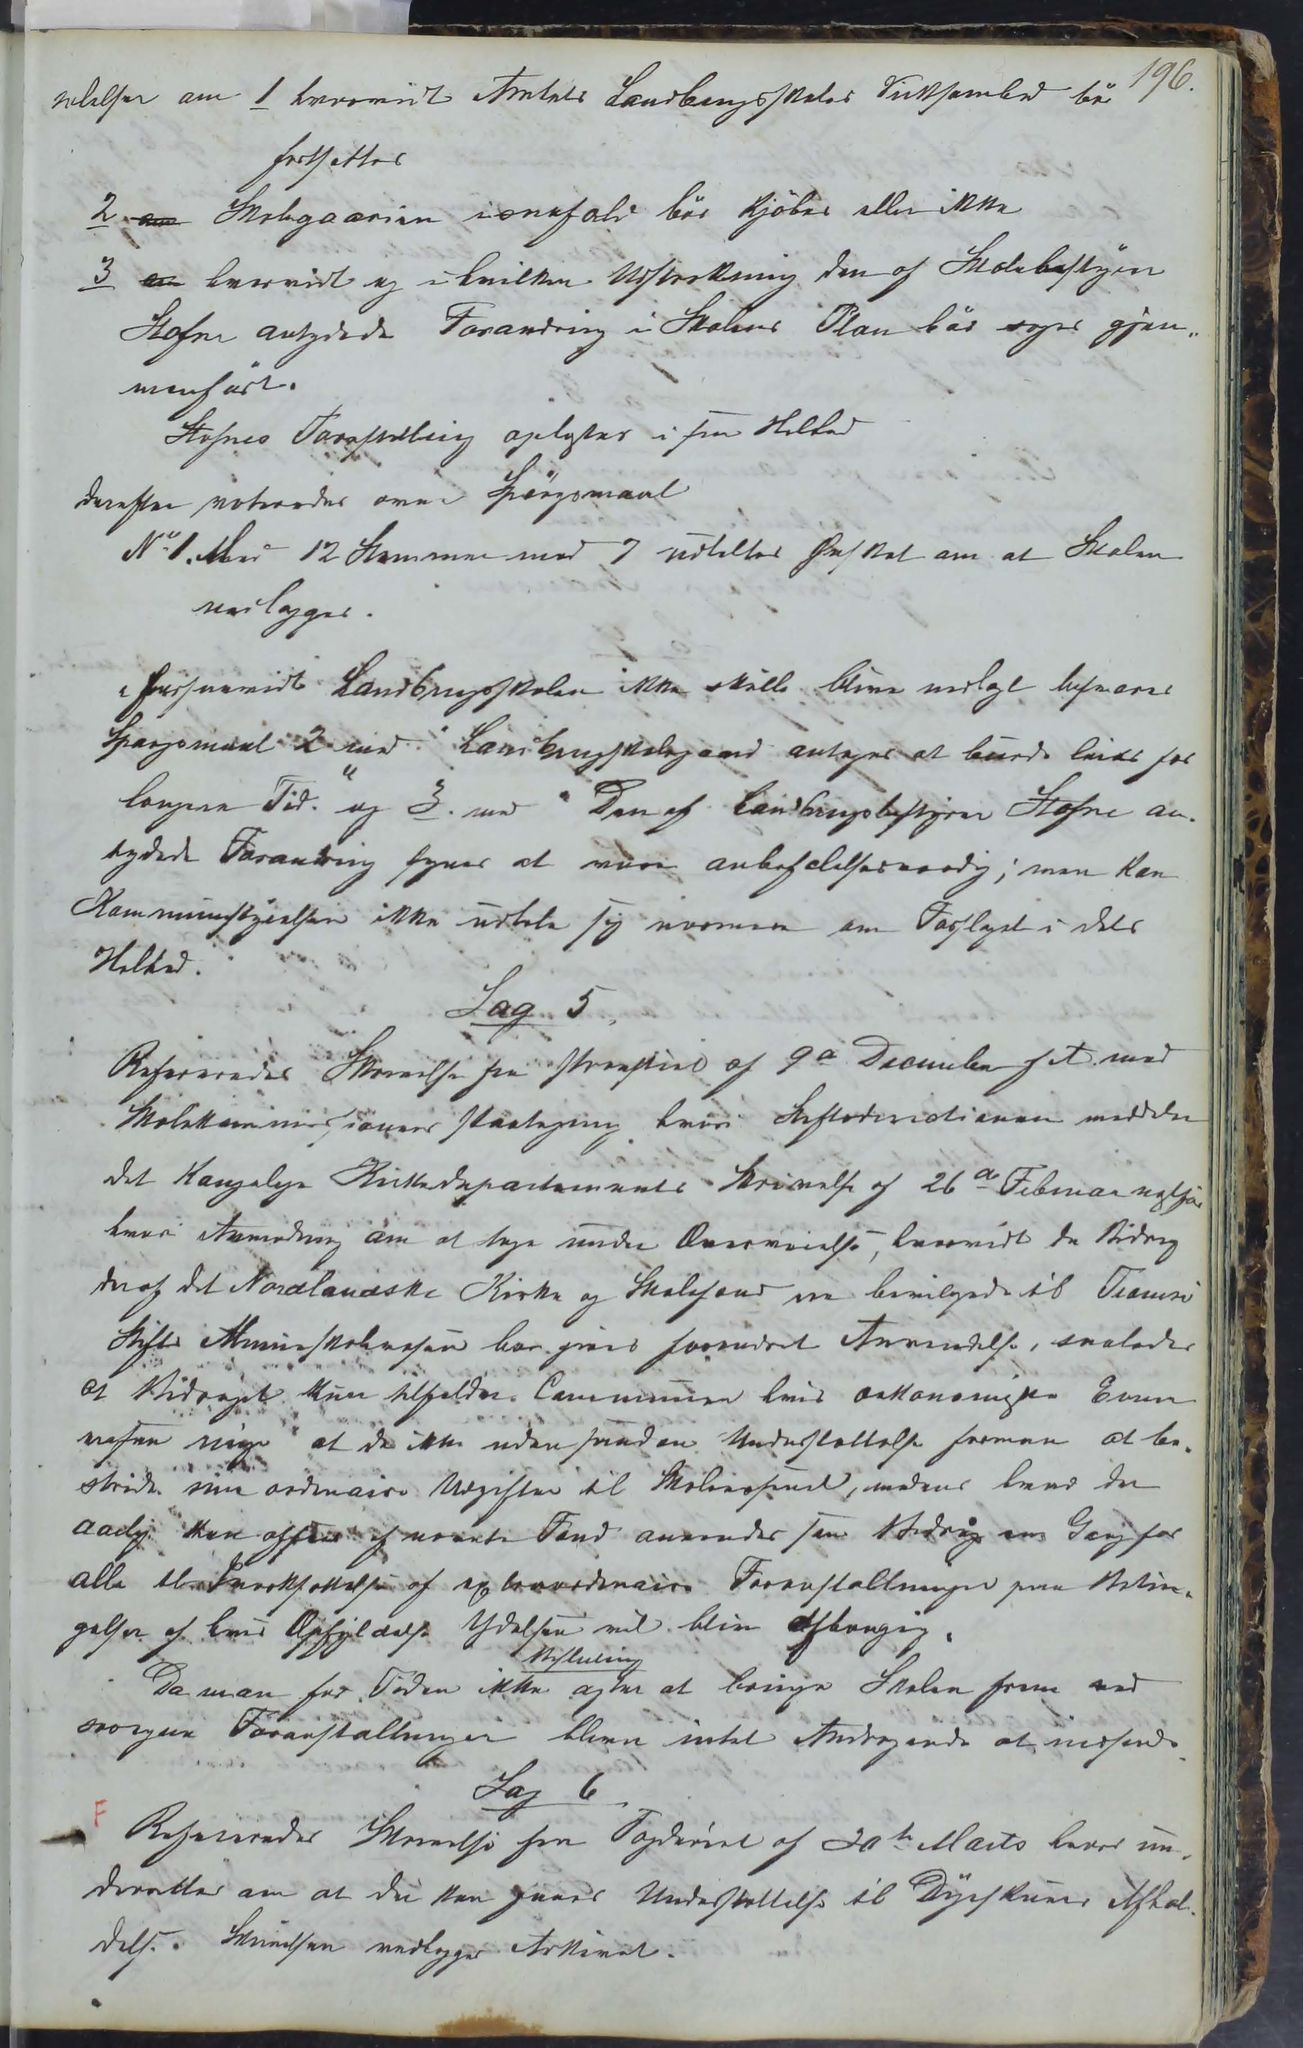 196.
relser om 1 hvorvidt Amtets Landbrugsskoles Virksomhed bør
fortsættes
2 om Skolegaarden i saafald bør kjøbes eller ikke
3 om hvorvidt og i hvilken Udstrækning den af Skolebestyrer
Stofne antydede Forandring i Skolens Plan bør søges gjen-
nemført.
Stofnes Forestilling oplæstes i sin Helhed
derefter voteredes over Spørgsmaal
No 1. Med 12 Stemmer mod 7 udtaltes Ønsket om at Skolen
nedlægges.
forsaavidt Landbrugsskolen ikke skulle blive nedlagt besvares
Spørgsmaal 2 med "Landbrugsskolegaard antages at burde leies for
længere Tid." og 3. med "Den af Landbrugsbestyrer Stofne an-
tydede Forandring synes at være anbefalelsesværdig; men kan
Kommunestyrelsen ikke udtale sig nærmere om Forslaget i dets
Helhed.
Sag 5
Refereredes Skrivelse fra Provstiet af 9de December f A. med
Skolekommissionens Paategning hvori Stiftsdirectionen meddeler
det Kongelige Kirkedepartements Skrivelse af 26de Februar
hvori Anmodning om at tage under Overveielse, hvorvidt de Bidrag
der af det Nordlandske Kirke og Skolefond ere bevilgede til Tromsø
Stifts Almueskolevæsen bør gives forandret Anvendelse, saaledes
at Bidraget kun tilfalder Communer hvis oekonomiske Evner
ere saa ringe at de ikke uden saadan Understøttelse formaa at be-
stride sine ordinaire Udgifter til Skolevæsenet, medens hvad der
aarlig kan af nævnte Fond anvendes som Bidrag en Gang for
alle til Iværksættelse af extraordinaire Foranstaltninger paa Betin-
gelser af hvis Opfyldelse Ydelsen vil blive afhængig.
Beslutning
Da man for Tiden ikke agter at bringe Skolen frem ved
saadanne Foranstaltninger bliver intet Andragende at indsende.
Sag 6
F
Refereredes Skrivelse fra Fogderiet af 20de Marts hvor un-
derrettes om at der kan gives Understøttelse til Dyrskuers Afhol-
delse. Skrivelsen vedlægges Arkivet.